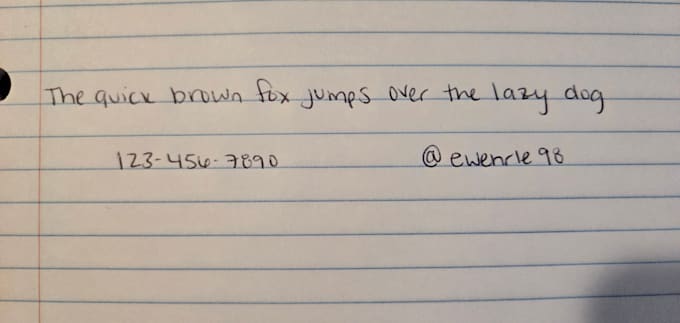 The quick brown fox jumps over the lazy dog
123-456-7890 @ewenrle98